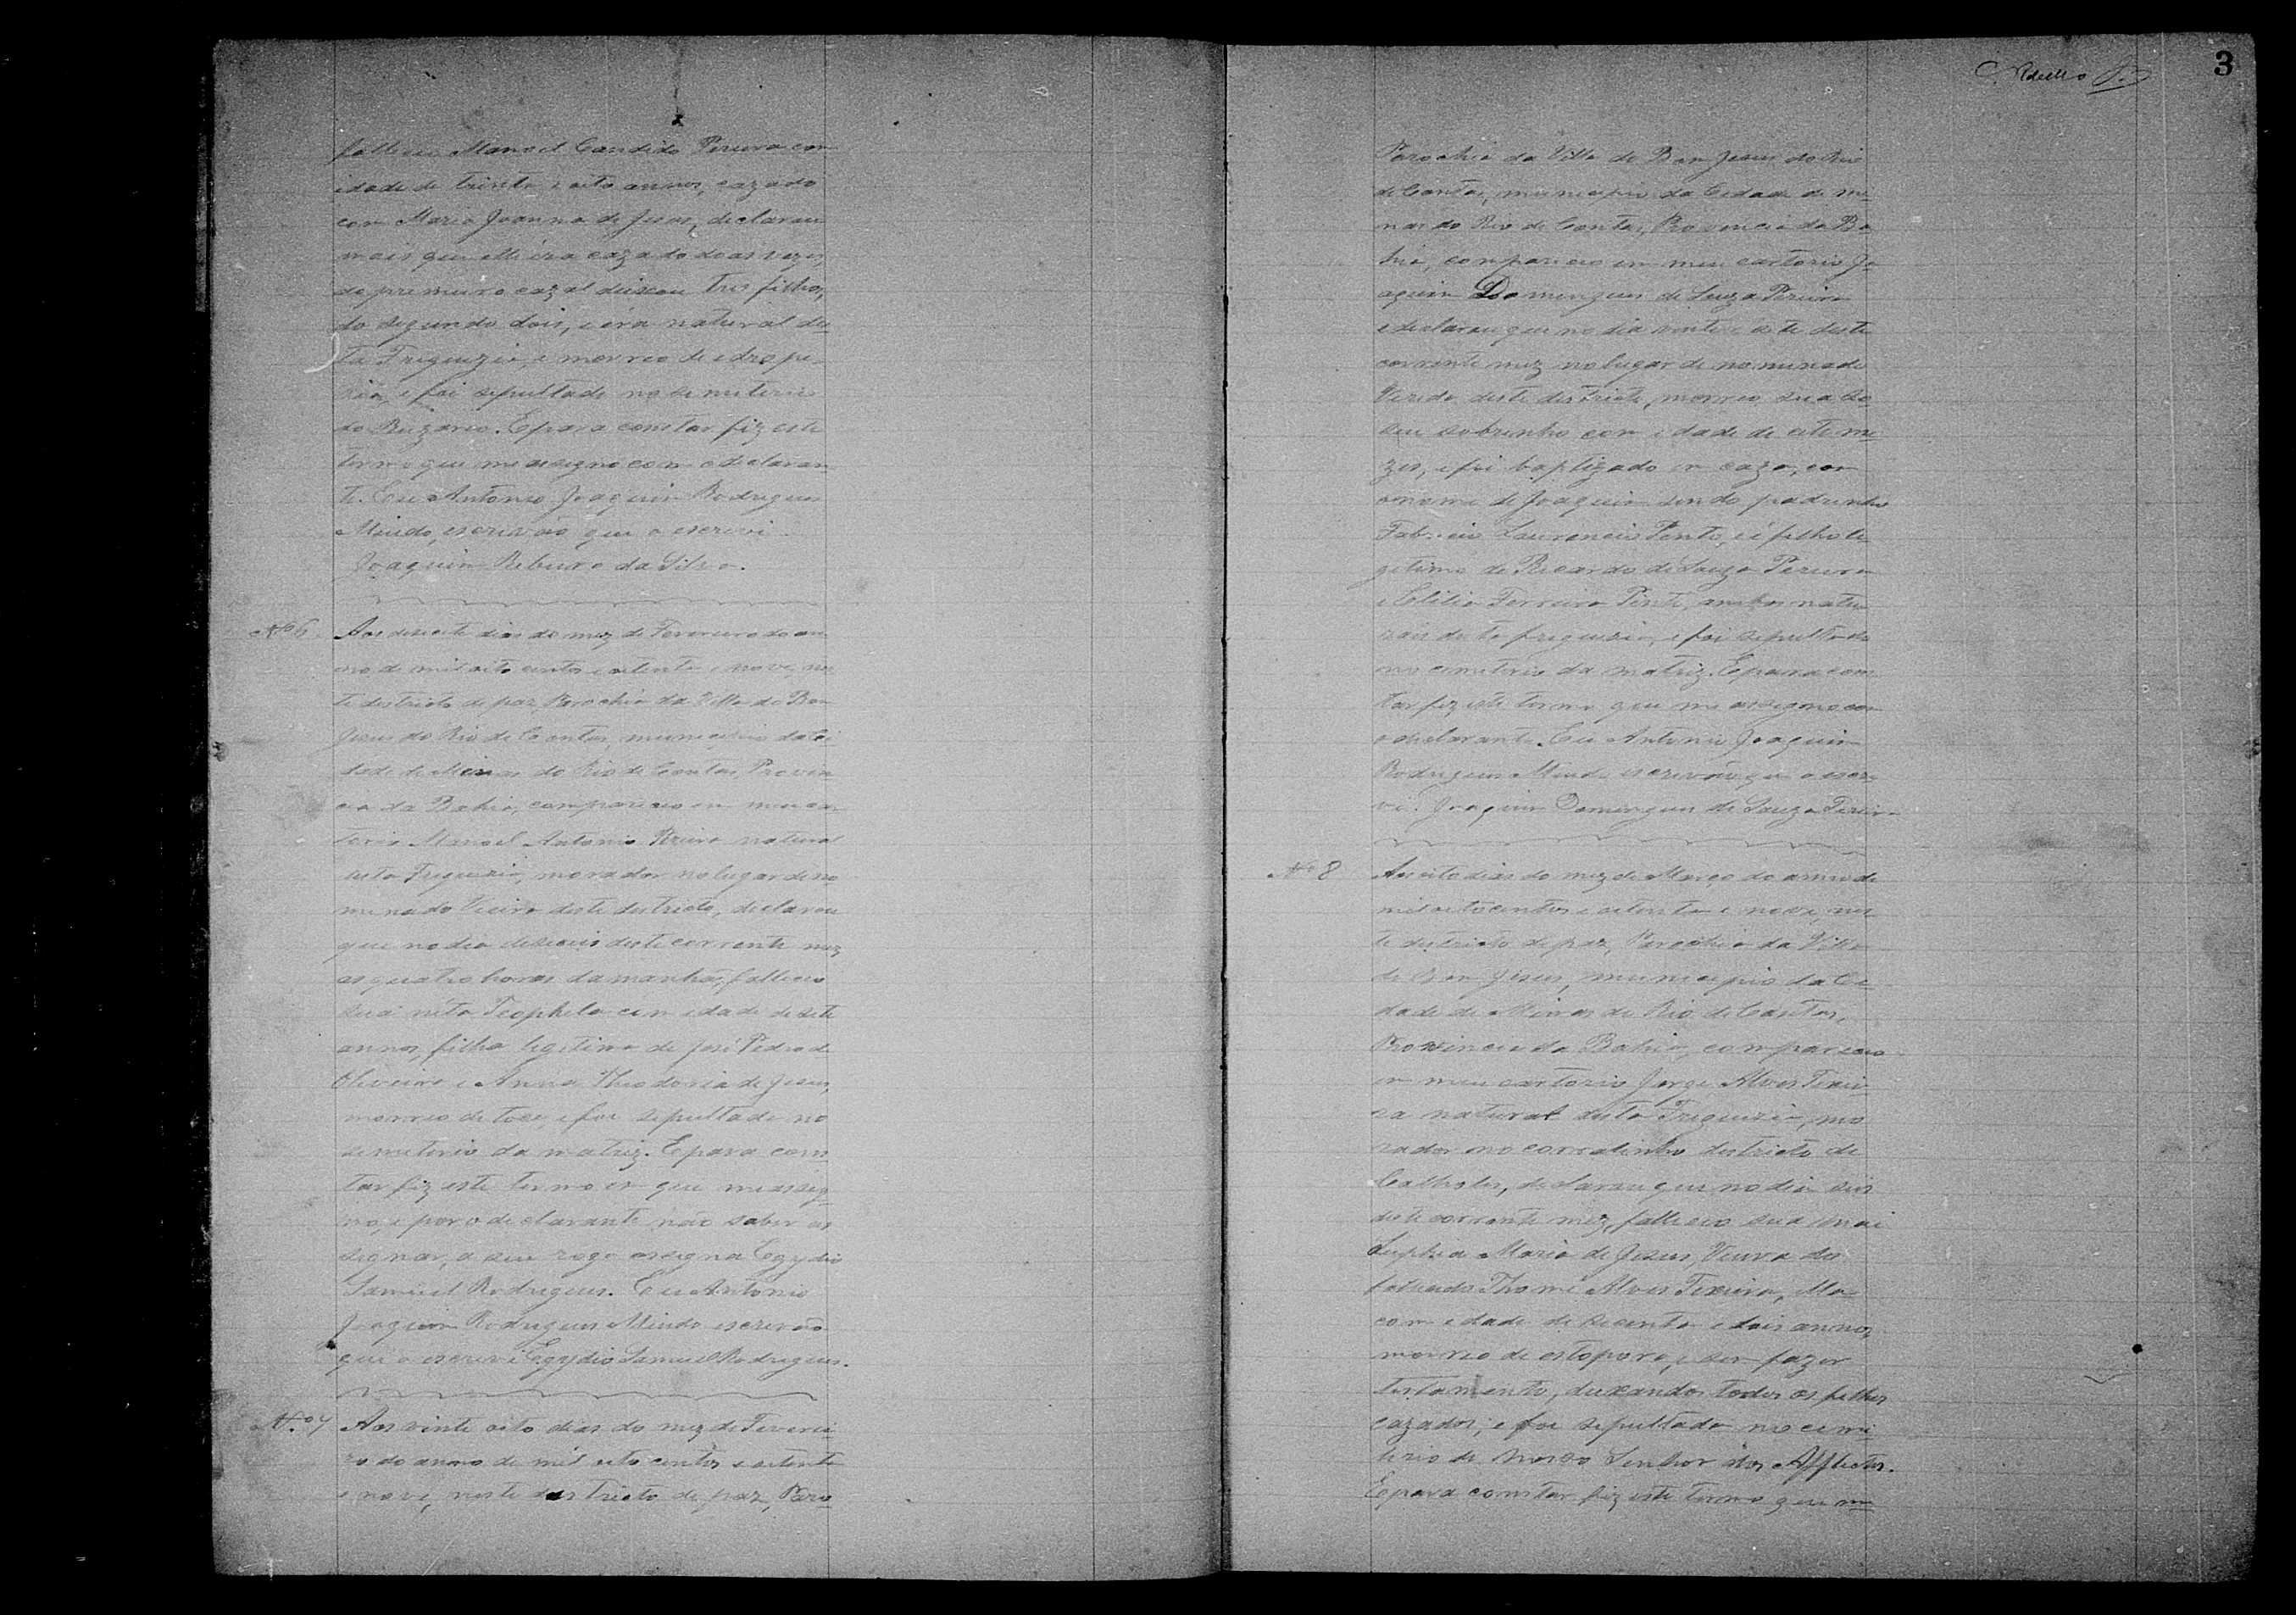 falleceu Manoel Candido Pereira com
idade de trinta e oito annos, cazado
com Maria Joanna de Jesus, declarou
mais que elle éra cazado doas vezes,
do premeiro cazal deixou tres filhos,
do segundo dois, e éra natural des
ta Freguezia, e morreo de edrope
zia, e foi sepultado no semiterio
do Ruzario. E para constar fiz este
termo que me assigno com o declaran
te. Eu Antonio Joaquim Rodrigues
Mindo, escrivão que o escrevi.
Joaquim Ribeiro da Silva.
Nº 6 Aos desecete dias do mez de Fevereiro do an
no de mil oito centos e oitenta e nove, nes
te districto de paz, Parochia da Villa do Bom
Jesus do Rio de Contas, municipio da Ci
dade de Minas do Rio de Contas, Provin
cia da Bahia, compareceo em meu car
torio Manoel Antonio natural
desta Freguezia, morador no lugar deno
menado deste destricto, declarou
que no dia deseceis deste corrente mez
as quatro horas da manhã, falleceo
sua néta Teophila com idade de sete
annos, filha legitima de José Pedro de
Oliveira e Anna Theodoria de Jesus,
morreo de toce, e foi sepultada no
semiterio da matriz. E para cons
tar fiz este termo em que me assig
no, e por o declarante não saber as
segnar, a seu rogo assigna Egydio
Samuel Rodrigues. Eu Antonio
Joaquim Rodrigues Mindo escrevão
que o escrevi Egydio Samuel Rodrigues.
Nº 7 Aos vinte oito dias do mez de Feverei
ro do anno de mil oito centos e oitenta
e nove, neste destricto de paz, Paro
3
Parochia da Villa do Bom Jesus do Rio
de Contas, municipio da Cidade de Mi
nas do Rio de Contas, Provincia da Ba
hia, compareceo em meu cartorio Jo
aquim Domingues de Souza Pereira
e declarou que no dia vinte e sete deste
corrente mez no lugar denominado
Vereda deste destricto, morreo
seu sobrinho com idade de oito me
zes, e foi baptizado em caza, com
o nome de Joaquim sendo padrinho
Fabricio Lourencio Pinto, e é filho le
getimo de Ricardo de Souza Pereira
e Celilia Ferreira Pinto, ambos natu
rais desta freguezia, e foi sepultado
no cemiterio da matriz. E para cons
tar fiz este termo que me assegno com
o declarante. Eu Antonio Joaquim
Rodrigues Mindo escrevão que o escre
vi. Joaquim Domingues de Souza Pereira
Nº 8 Aos oito dias do mez de Março do anno de
mil oitocentos e oitenta e nove, nes
te destricto de paz, Parochia da Villa
de Bom Jesus, municipio da Ci
dade de Minas do Rio de Contas,
Provincia da Bahia, compareceo
em meu cartorio Jorge Alves Teixei
ra natural desta Freguezia, mo
rador no corralinho destricto de
declarou que no dia seis
deste corrente mez, falleceo sua mai
Maria de Jesus, Viuva do
fallecido Thomé Alves Teixeira, Ella
com idade de secenta e dois annos,
morreo de estopore, e sem fazer
testamento, deixando todos os filhos
cazados; e foi sepultada no cemi
terio de Nosso Senhor dos Afflictos.
E para constar fiz este termo que me